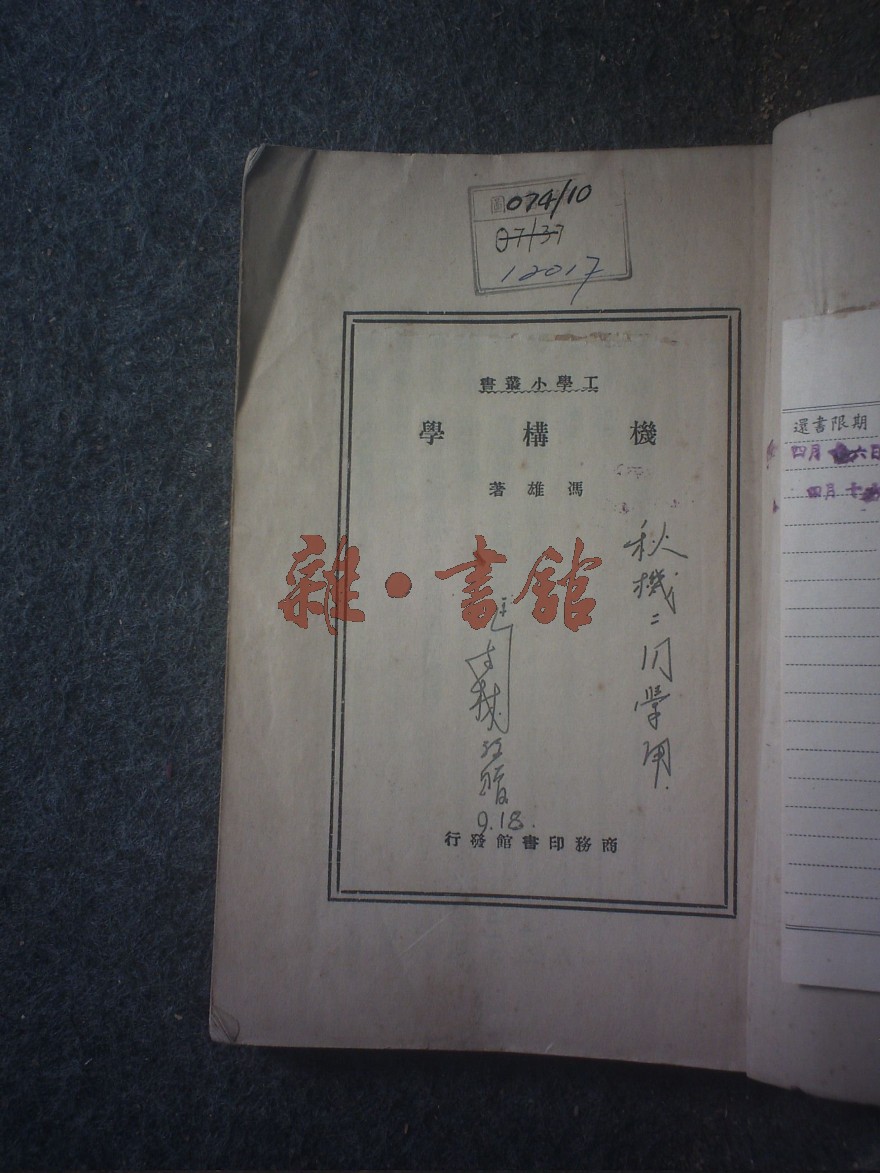 圖074/10
07/37
12017
工學小叢書
機構學
馮雄著
秋機二同學用
9.18.
商務印書館發行
雜·書館
還書限期
四月十六日
四月十